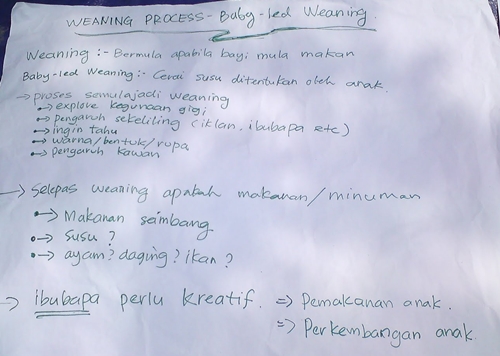 WEANING PROCESS - Baby-led Weaning.
Weaning :- Bermula apabila bayi mula makan
Baby-led Weaning :- Cerai susu ditentukan oleh anak.
→ proses semulajadi weaning
•→ explore kegunaan gigi
•→ pengaruh sekeliling (iklan, ibubapa etc)
•→ ingin tahu
•→ warna/bentuk/rupa
•→ pengaruh kawan
→ selepas weaning apakah makanan/minuman
•→ Makanan seimbang
•→ susu ?
•→ ayam? daging? ikan ?
→ ibubapa perlu kreatif. => Pemakanan anak.
=> Perkembangan anak